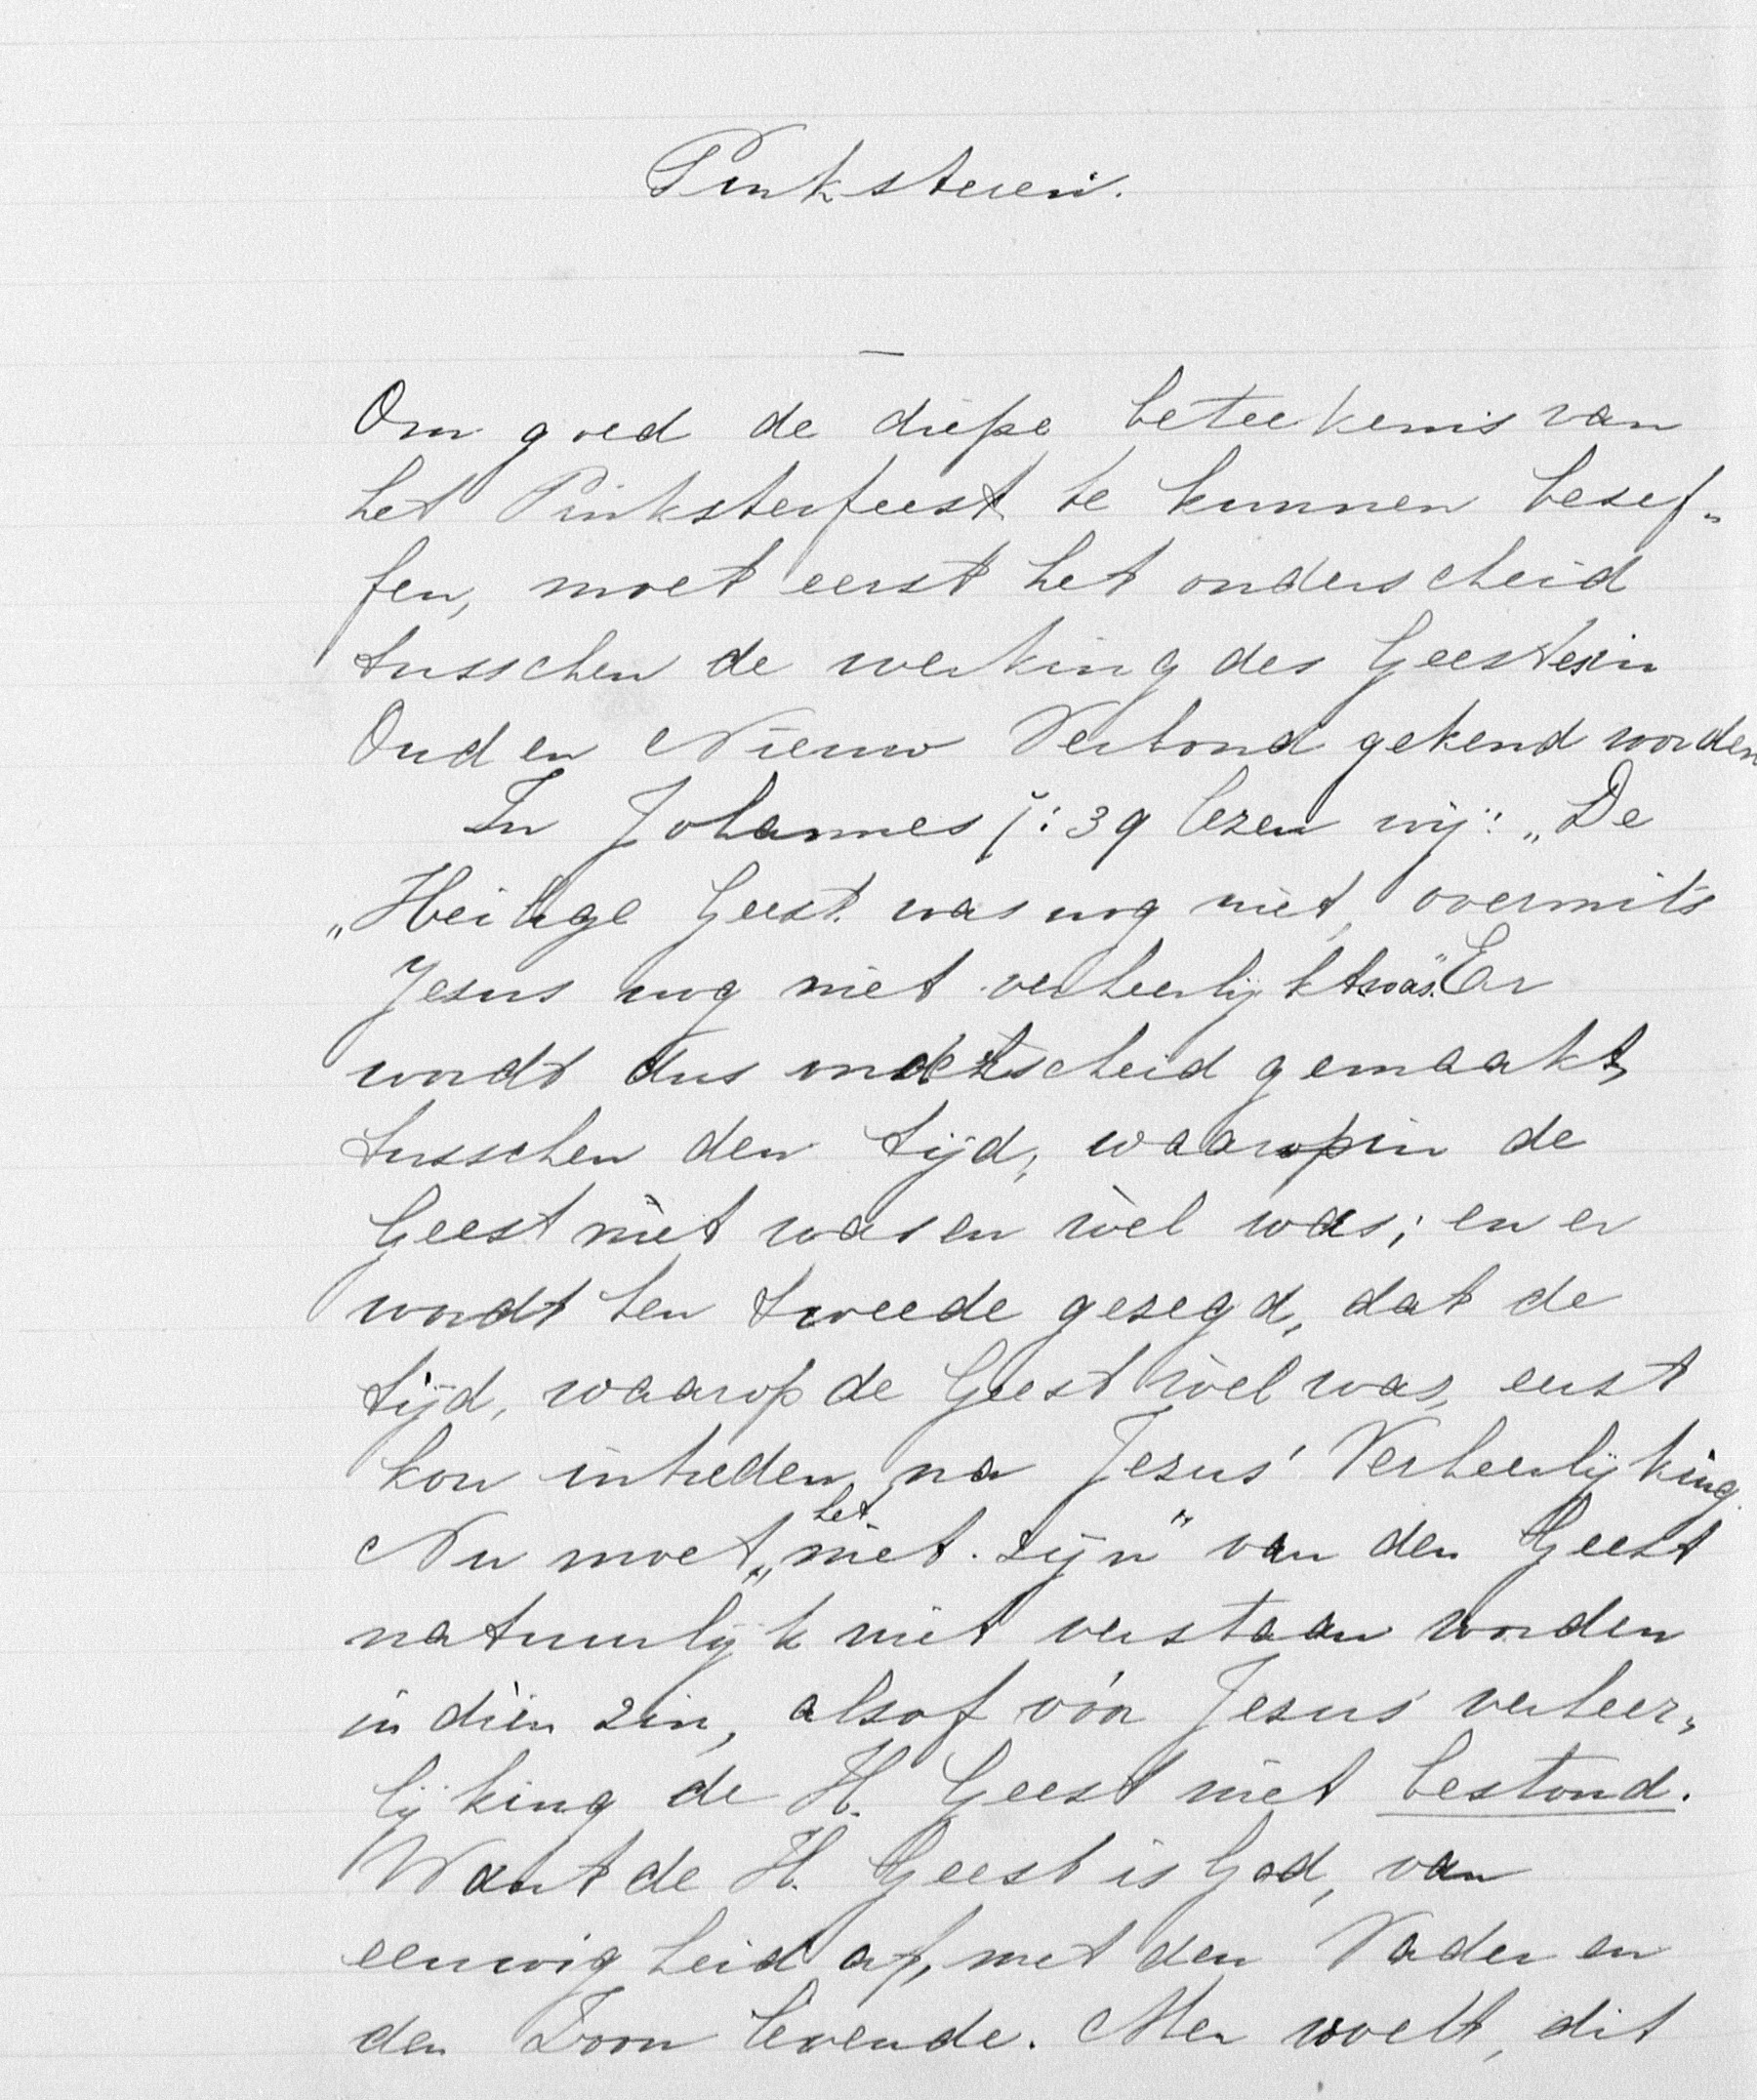 Pinksteren.
Om goed de diepe beteekenis van
het Pinksterfeest te kunnen besef-
fen, moet eerst het onderscheid
tusschen de werking des Geestes in
Oud en Nieuw Verbond gekend worden
In Johannes 7:39 lezen wij: „De
„Heilige Geest was nog niet, overmits
Jesus nog niet verheerlijkt was." Er
wordt dus onderscheid gemaakt,
tusschen den tijd, waarin de
Geest nièt was en wèl was; en er
wordt ten tweede gezegd, dat de
tijd, waarop de Geest wèl was, eerst
kon intreden na Jezus' Verheerlijking.
Nu moet „het nièt-zijn" van den Geest
natuurlijk niet verstaan worden
in dièn zin, alsof vóór Jezus' verheer-
lijking de H. Geest niet bestond.
Want de H. Geest is God, van
eeuwigheid af, met den Vader en
den Zoon levende. Men voelt, dit